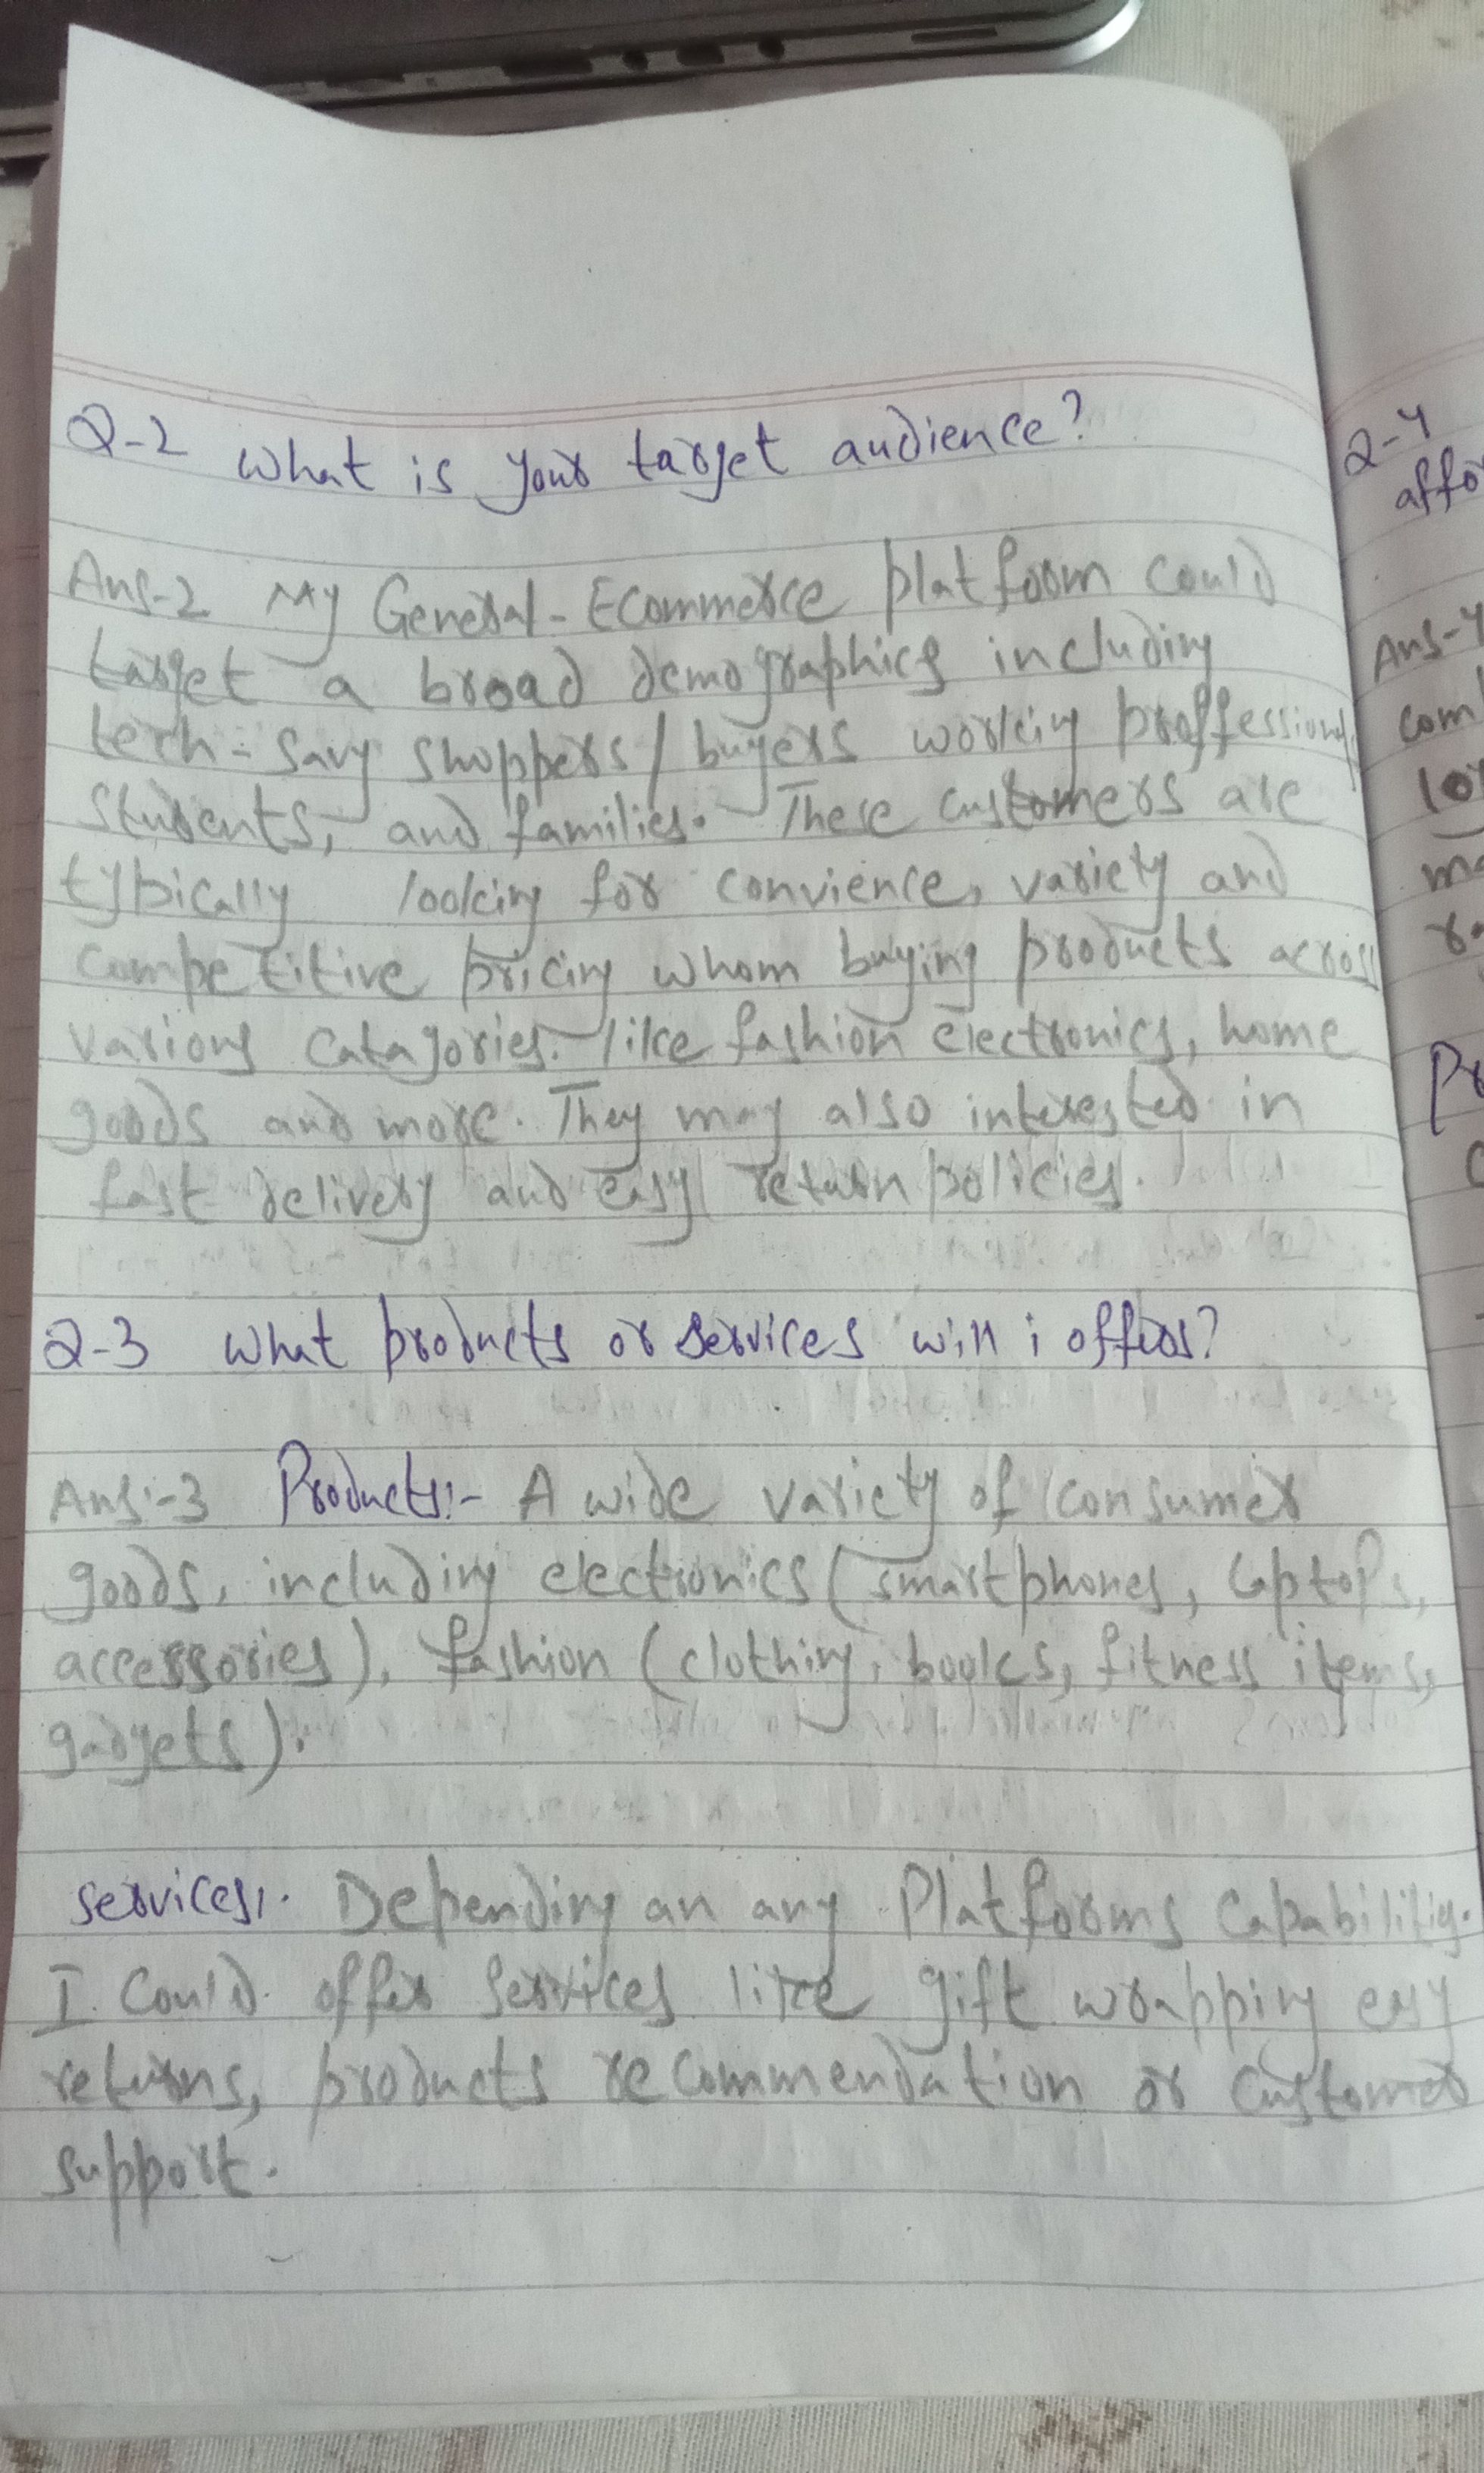 Q-2 What is your target audience?
Ans-2 My General-Ecommerce platform could
target a broad demographics including
tech-savy shoppers/buyers working proffessionals
students, and families. These customers are
typically looking for convience, variety and
competitive pricing whom buying products across
various catagories. like fashion electronics, home
goods and more. They may also interested in
fast delivery and easy return policies.
Q-3 What products or services will i offers?
Ans:-3 Products:- A wide variety of consumer
goods, including electronics (smartphones, laptops,
accessories), fashion (clothing, books, fitness items,
gadgets).
services:. Depending an any Platforms capabilitiy.
I could offer services like gift wrapping easy
returns, products recommendation or customer
support.
Q-4
Ans-4